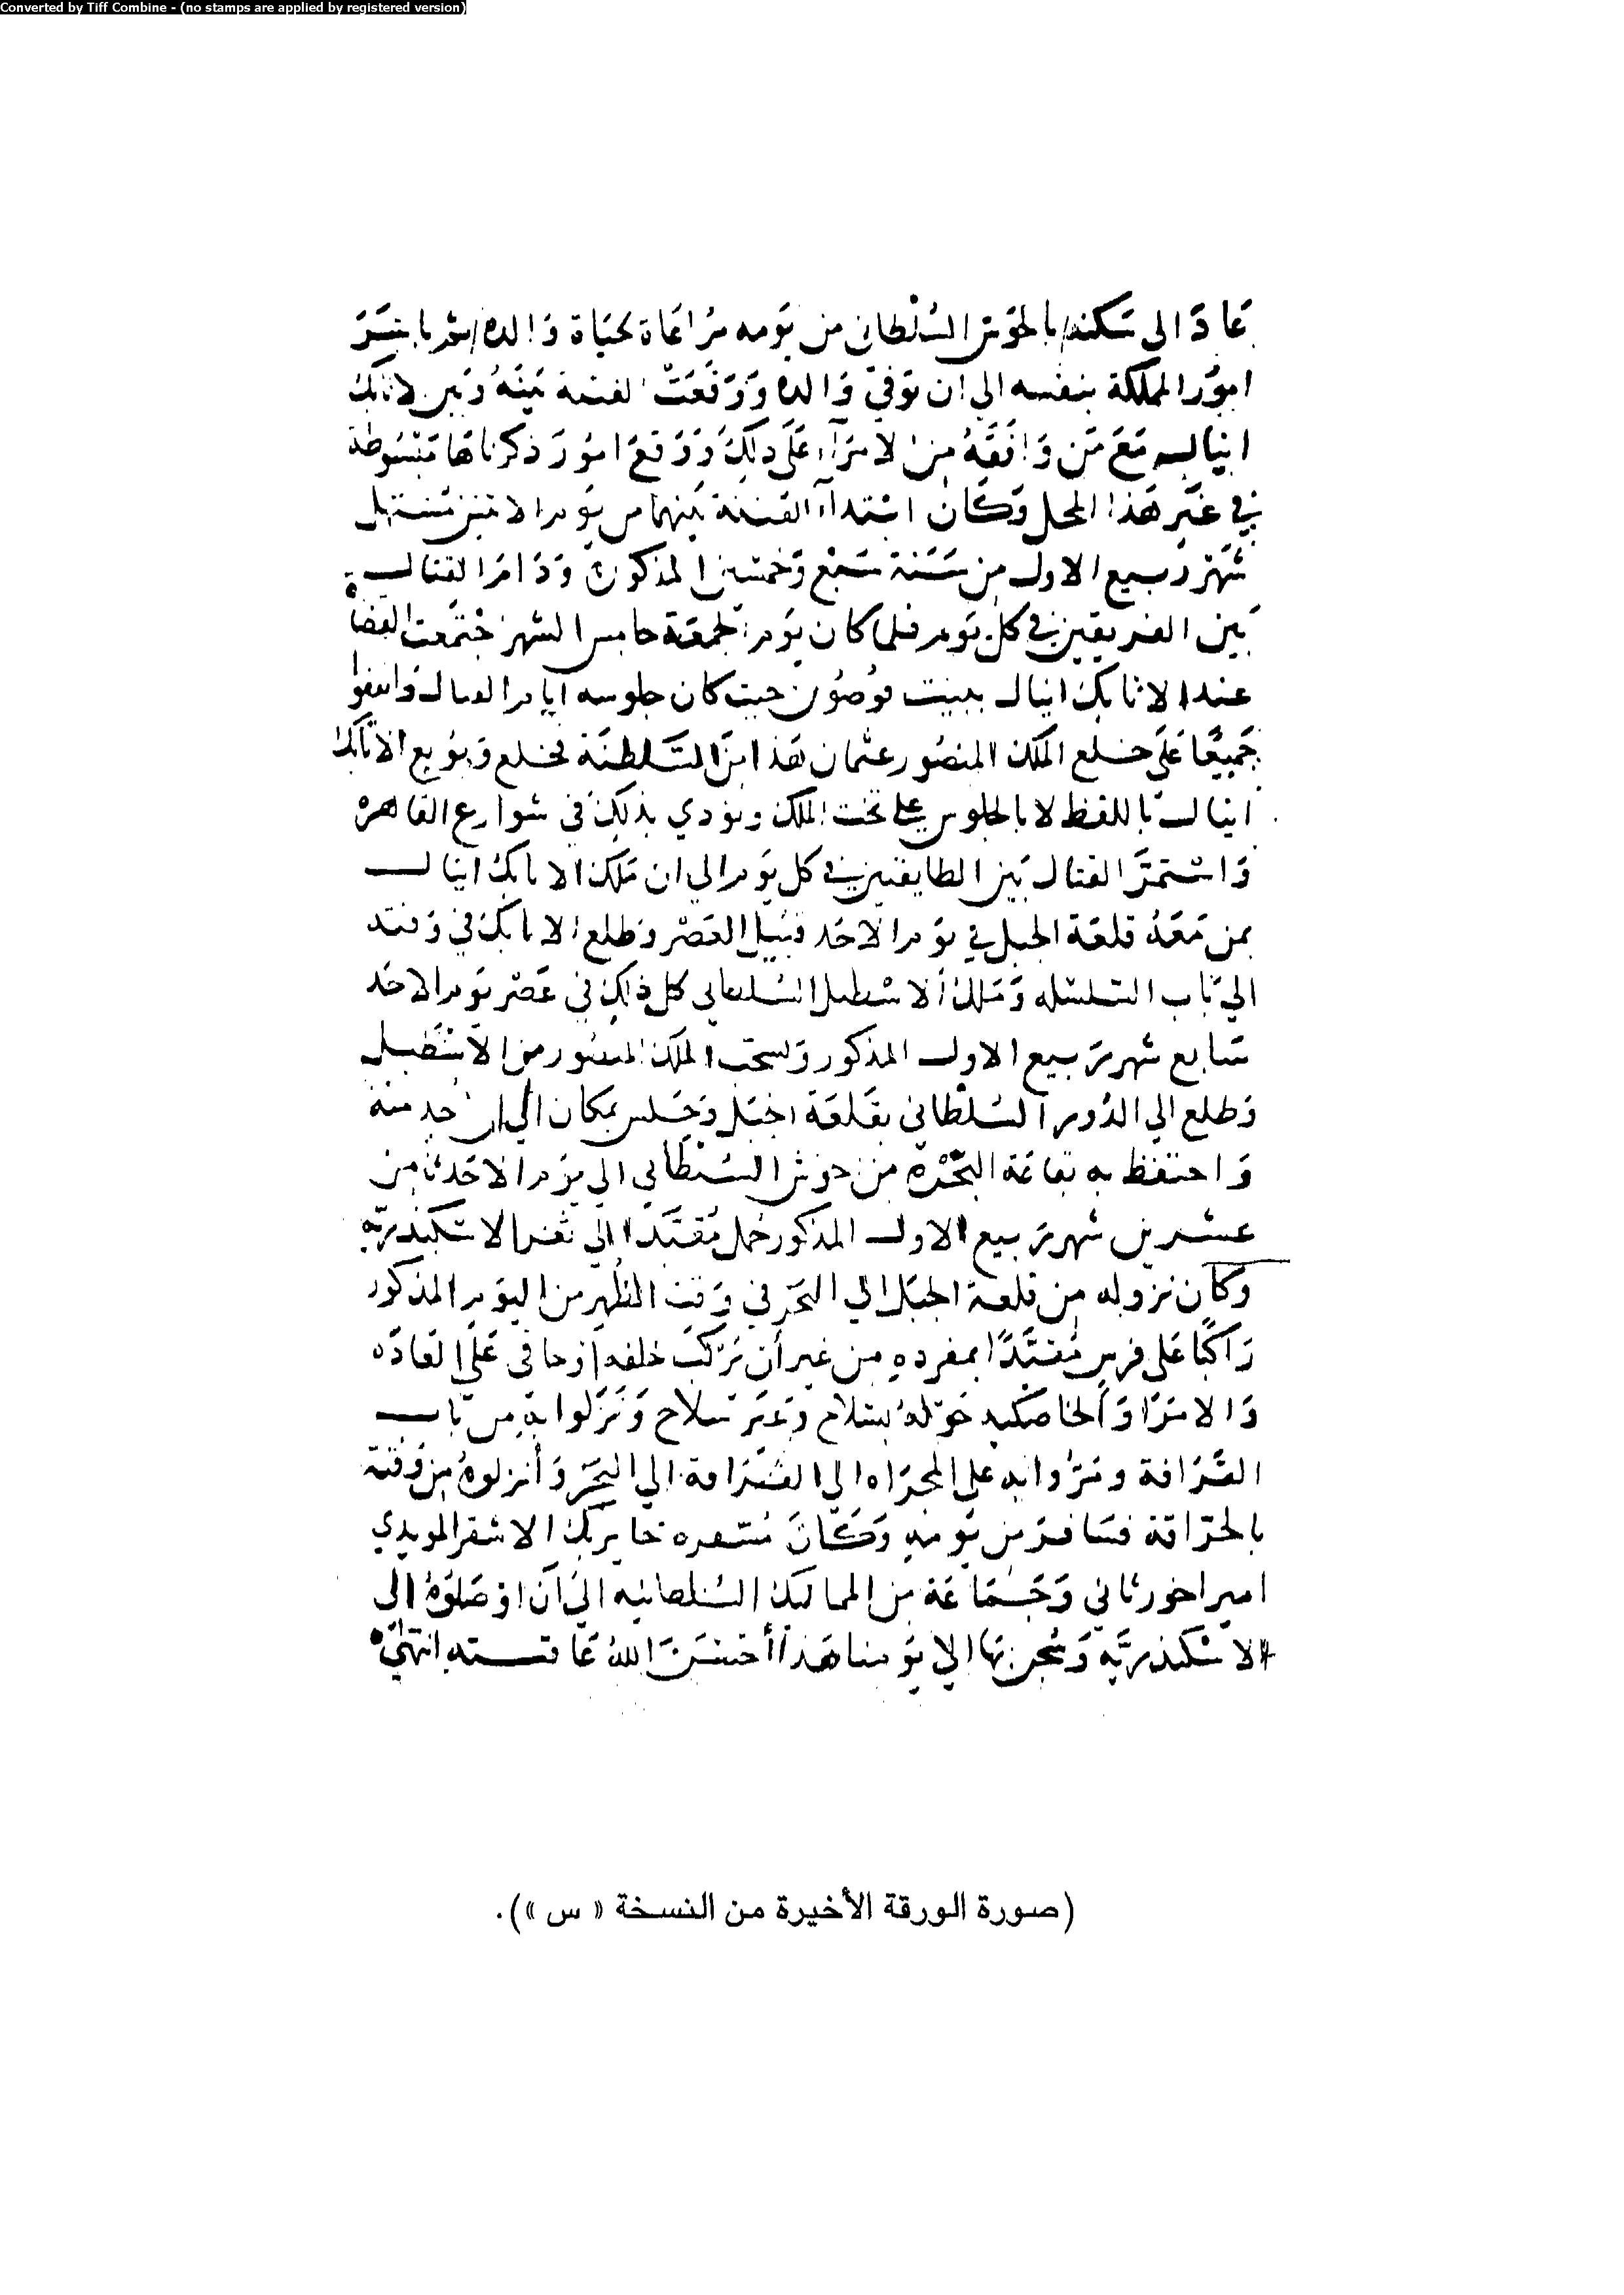 Converted by Tiff Combine - (no stamps are applied by registered version)
عاد الى سكنه بالحوش السلطاني من يومه مراعاة لحياة والده ثم باشر
امور المملكة بنفسه الى ان توفي والده ووقعت الفتنة بينه وبين الاتابك
اينال مع من وافقه من الامراء على ذلك ووقع امور ذكرناها مبسوطة
في غير هذا المحل وكان ابتداء الفتنة بينهما من يوم الاثنين مستهل
شهر ربيع الاول من سنة سبع وخمسين المذكورة ودام القتال
بين الفريقين في كل يوم فلما كان يوم الجمعة خامس الشهر اجتمعت القضاة
عند الاتابك اينال ببيت قوصون حيث كان جلوسه ايام القتال واتفقوا
جميعا على خلع الملك المنصور عثمان هذا من السلطنة فخلع وبويع الاتابك
اينال باللفظ لا بالجلوس على تخت الملك ونودي بذلك في شوارع القاهرة
واستمر القتال بين الطايفتين في كل يوم الي ان ملك الاتابك اينال
بمن معه قلعة الجبل في يوم الاحد قبيل العصر وطلع الاتابك في وقته
الي باب السلسله وملك الاسطبل السلطاني كل ذلك في عصر يوم الاحد
سابع شهر ربيع الاول المذكور وسحب الملك المنصور من الاسطبل
وطلع الي الدور السلطاني بقلعة الجبل وجلس بمكان الي ان اخذ منه
واحتفظ به بقاعة البحرة من حوش السلطاني الي يوم الاحد ثامن
عشرين شهر ربيع الاول المذكور حمل مقيدا الي ثغر الاسكندرية
وكان نزوله من قلعة الجبل الي البحر في وقت الظهر من اليوم المذكور
راكبا على فرس مقيدا بمفرده من غير أن يركب خلفه اوجاقي على العاده
والامرا والخاصكيه حوله بسلاح وغير سلاح ونزلوا به من باب
القرافة ومروا به على المجراه الى القرافة الي البحر وأنزلوه من وقته
بالحراقة فسافر من يومه وكان مسفره خاير بك الاشقر المويدي
امير اخور ثاني وجماعة من المماليك السلطانيه الى أن اوصلوه الى
الاسكندرية وسجن بها الي يومنا هذا أحسن الله عاقبته انتهى
(صورة الورقة الأخيرة من النسخة « س »).